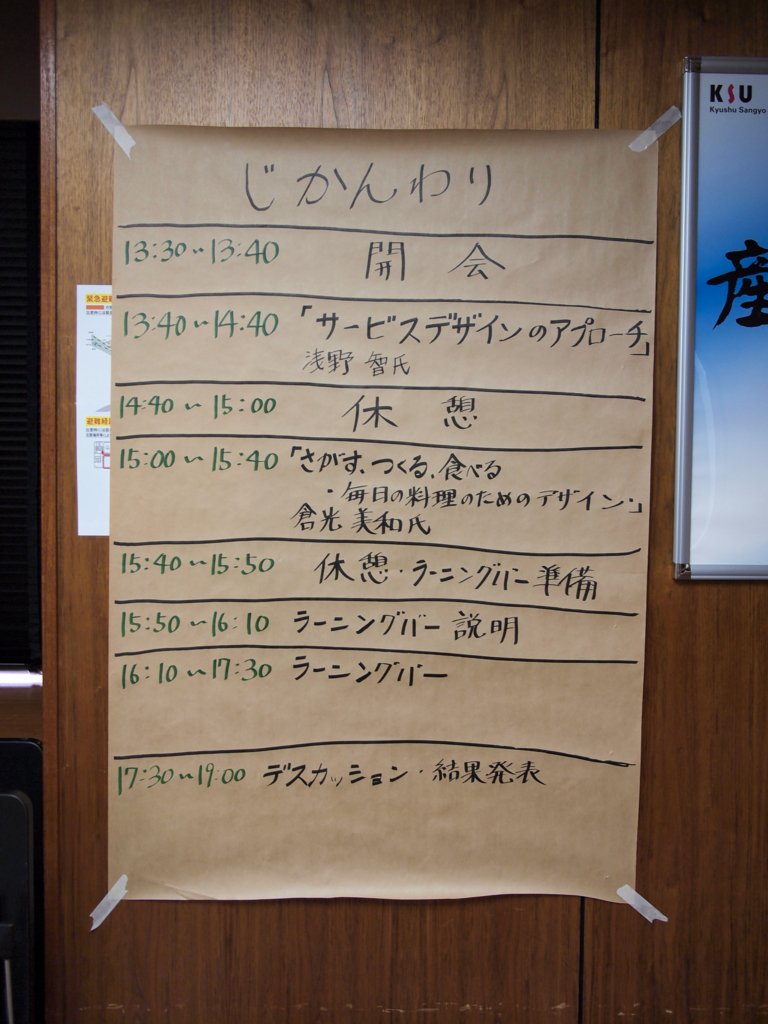 じかんわり
13:30~13:40 開会
13:40~14:40 「サービスデザインのアプローチ」
浅野 智氏
14:40 ~ 15:00 休憩
15:00 ~ 15:40 「さがす、つくる、食べる
・毎日の料理のためのデザイン・」
倉光 美和氏
15:40 ~ 15:50 休憩・ラーニングバー準備
15:50 ~ 16:10 ラーニングバー 説明
16:10 ~ 17:30 ラーニングバー
17:30 ~ 19:00 デスカッション・結果発表
KSU
Kyushu Sangyo
産
緊急避難